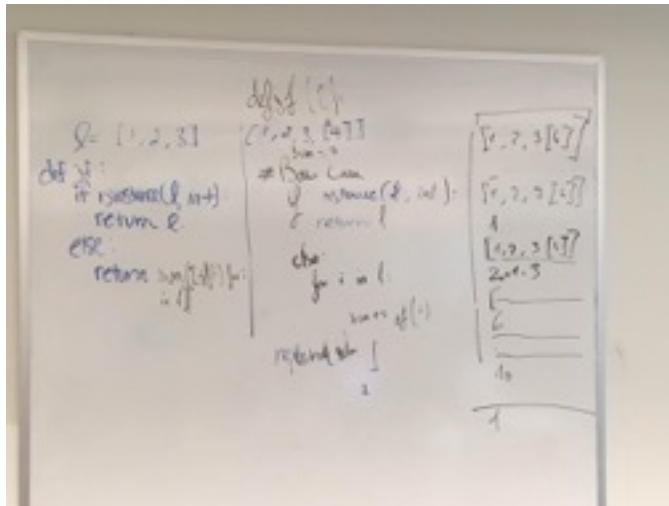 l = [1, 2, 3]
def sf:
if isinstance(l, int):
return l
else:
return sum([sf(i) for i
in l])
def sf(l):
[1, 2, 3, [4]]
# Base Case
isinstance(l, int):
return l
else:
for i in l:
sum += sf(i)
return sum
[1, 2, 3 [4]]
[1, 2, 3 [4]]
1
[1, 2, 3 [4]]
10
1